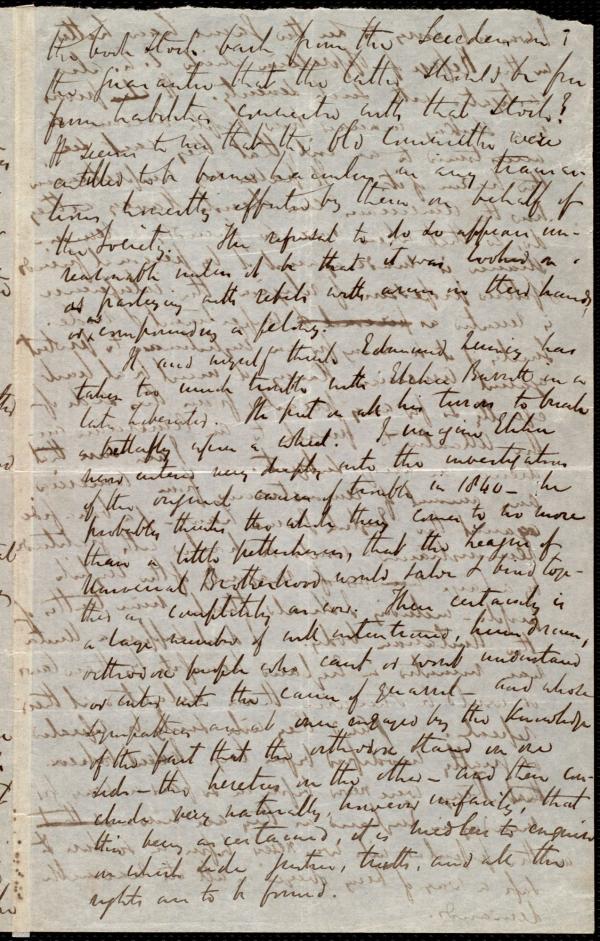 the book stock back from the Seceders on
the guarantee that the latter should be free
from liabilities connected with that stock?
It seems to me that the Old Committee were
entitled to be borne harmless in any transac-
tions honestly effected by them on behalf of
the Society. The refusal to do so appears un-
reasonable unless it be that it was looked on
as parleying with rebels with arms in their hands,
or as compounding a felony.
H and myself think Edmund Quincy has
taken too much trouble with Elihu Burritt in a
late Liberator. He put on all his terrors to break
a butterfly upon a wheel. I imagine Elihu
never entered very deeply into the investigation
of the original causes of trouble in 1840 - he
probably thinks the whole thing comes to no more
than a little pettishness, that the League of
Universal Brotherhood would salve & bind toge-
ther as completely as ever. There certainly is
a large number of well intentioned, humdrum,
orthodox people who can't or won't understand
or enter into the causes of quarrel - and whose
sympathies are at once engaged by the knowledge
of the fact that the orthodox stand on one
side - the heretics on the other - and then con-
clude very naturally, however unfairly, that
this being ascertained, it is needless to enquire
on which side justice, truth, and all the
rights are to be found.